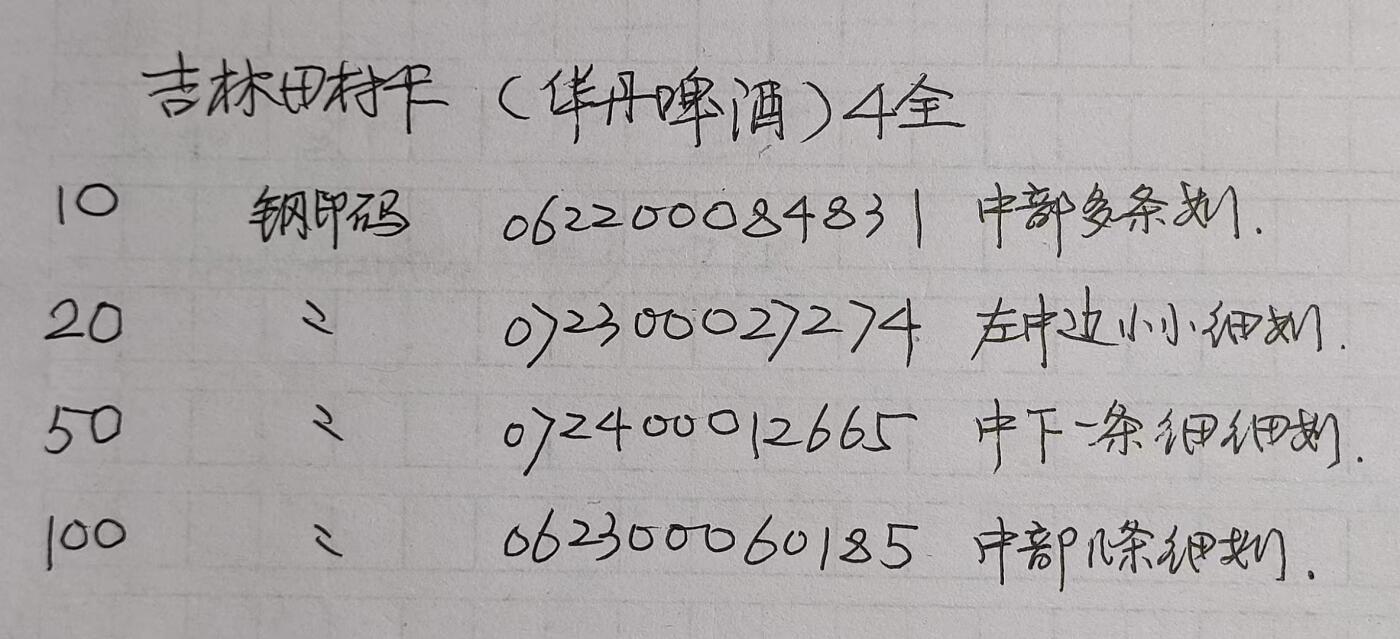 吉林田村卡（华丹啤酒）4全
10 钢印码 062200084831 中部多条划.
20 〃 072300027274 左中边小小细划.
50 〃 072400012665 中下一条细细划.
100 〃 062300060185 中部几条细划.